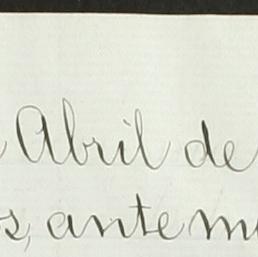 Abril de
s, ante m